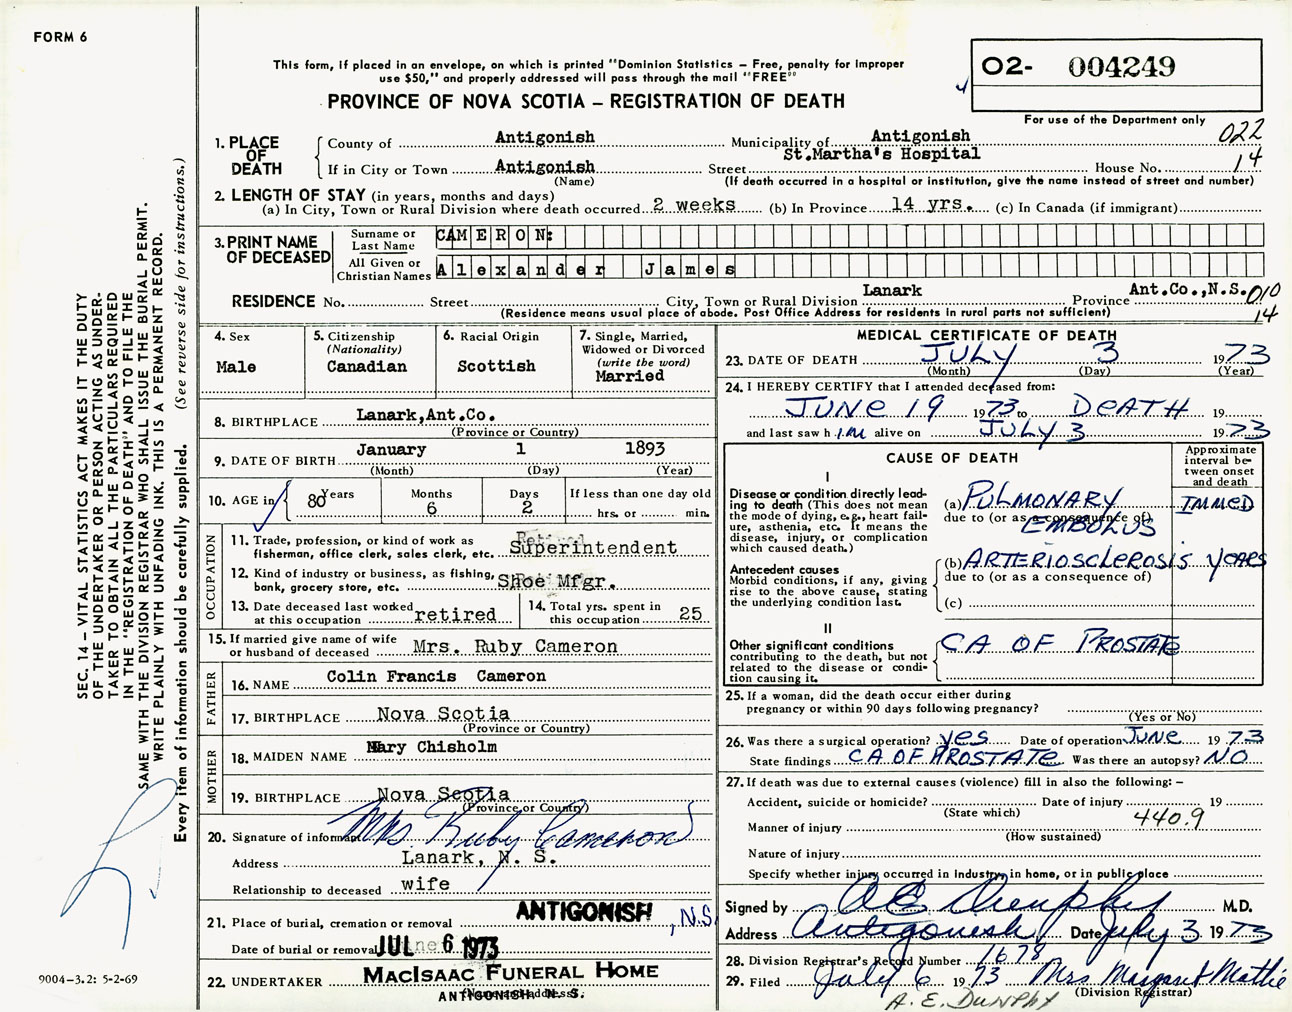 FORM 6
This form, if placed in an envelope, on which is printed "Dominion Statistics — Free, penalty for improper
use $50," and properly addressed will pass through the mail "FREE"
PROVINCE OF NOVA SCOTIA — REGISTRATION OF DEATH
O2- 004249
For use of the Department only
022
14
1. PLACE OF DEATH
County of Antigonish Municipality of Antigonish
St.Martha's Hospital
If in City or Town Antigonish Street House No.
(Name) (If death occurred in a hospital or institution, give the name instead of street and number)
2. LENGTH OF STAY (in years, months and days)
(a) In City, Town or Rural Division where death occurred 2 weeks (b) In Province 14 yrs. (c) In Canada (if immigrant)
3. PRINT NAME OF DECEASED
Surname or Last Name CAMERON:
All Given or Christian Names Alexander James
RESIDENCE No. Street City, Town or Rural Division Lanark Province Ant.Co.,N.S. 010
(Residence means usual place of abode. Post Office Address for residents in rural parts not sufficient) 14
4. Sex
Male
5. Citizenship
(Nationality)
Canadian
6. Racial Origin
Scottish
7. Single, Married,
Widowed or Divorced
(write the word)
Married
8. BIRTHPLACE Lanark,Ant.Co.
(Province or Country)
9. DATE OF BIRTH January 1 1893
(Month) (Day) (Year)
10. AGE in 80 Years Months 6 Days 2 If less than one day old
hrs. or min.
OCCUPATION
11. Trade, profession, or kind of work as
fisherman, office clerk, sales clerk, etc. Superintendent
12. Kind of industry or business, as fishing,
bank, grocery store, etc. Shoe Mfgr.
13. Date deceased last worked
at this occupation retired
14. Total yrs. spent in
this occupation 25
15. If married give name of wife
or husband of deceased Mrs. Ruby Cameron
FATHER
16. NAME Colin Francis Cameron
17. BIRTHPLACE Nova Scotia
(Province or Country)
MOTHER
18. MAIDEN NAME Mary Chisholm
19. BIRTHPLACE Nova Scotia
(Province or Country)
20. Signature of informant Mrs. Ruby Cameron
Address Lanark, N. S.
Relationship to deceased wife
21. Place of burial, cremation or removal ANTIGONISH, N.S.
Date of burial or removal JUL 6 1973
22. UNDERTAKER MACISAAC FUNERAL HOME
ANTIGONISH N. S.
MEDICAL CERTIFICATE OF DEATH
23. DATE OF DEATH JULY 3 1973
(Month) (Day) (Year)
24. I HEREBY CERTIFY that I attended deceased from:
JUNE 19 1973 to DEATH 19
and last saw h im alive on JULY 3 1973
CAUSE OF DEATH
Approximate
interval be-
tween onset
and death
I
Disease or condition directly lead-
ing to death (This does not mean
the mode of dying, e.g., heart fail-
ure, asthenia, etc. It means the
disease, injury, or complication
which caused death.)
(a) PULMONARY IMMED
due to (or as a consequence of)
EMBOLUS
Antecedent causes
Morbid conditions, if any, giving
rise to the above cause, stating
the underlying condition last.
(b) ARTERIOSCLEROSIS YEARS
due to (or as a consequence of)
(c)
II
Other significant conditions
contributing to the death, but not
related to the disease or condi-
tion causing it.
CA OF PROSTATE
25. If a woman, did the death occur either during
pregnancy or within 90 days following pregnancy?
(Yes or No)
26. Was there a surgical operation? yes Date of operation JUNE 1973
State findings CA OF PROSTATE Was there an autopsy? NO
27. If death was due to external causes (violence) fill in also the following: —
Accident, suicide or homicide? Date of injury 19
(State which) 440.9
Manner of injury
(How sustained)
Nature of injury
Specify whether injury occurred in industry, in home, or in public place
Signed by A E Dunphy M.D.
Address Antigonish Date July 3 1973
28. Division Registrar's Record Number 1678
29. Filed July 6 1973 Mrs Margaret Mattie
(Division Registrar)
A. E. DUNPHY
SEC. 14 — VITAL STATISTICS ACT MAKES IT THE DUTY
OF THE UNDERTAKER OR PERSON ACTING AS UNDER-
TAKER TO OBTAIN ALL THE PARTICULARS REQUIRED
IN THE "REGISTRATION OF DEATH" AND TO FILE THE
SAME WITH THE DIVISION REGISTRAR WHO SHALL ISSUE THE BURIAL PERMIT.
WRITE PLAINLY WITH UNFADING INK. THIS IS A PERMANENT RECORD.
Every item of information should be carefully supplied. (See reverse side for instructions.)
9004-3.2: 5-2-69